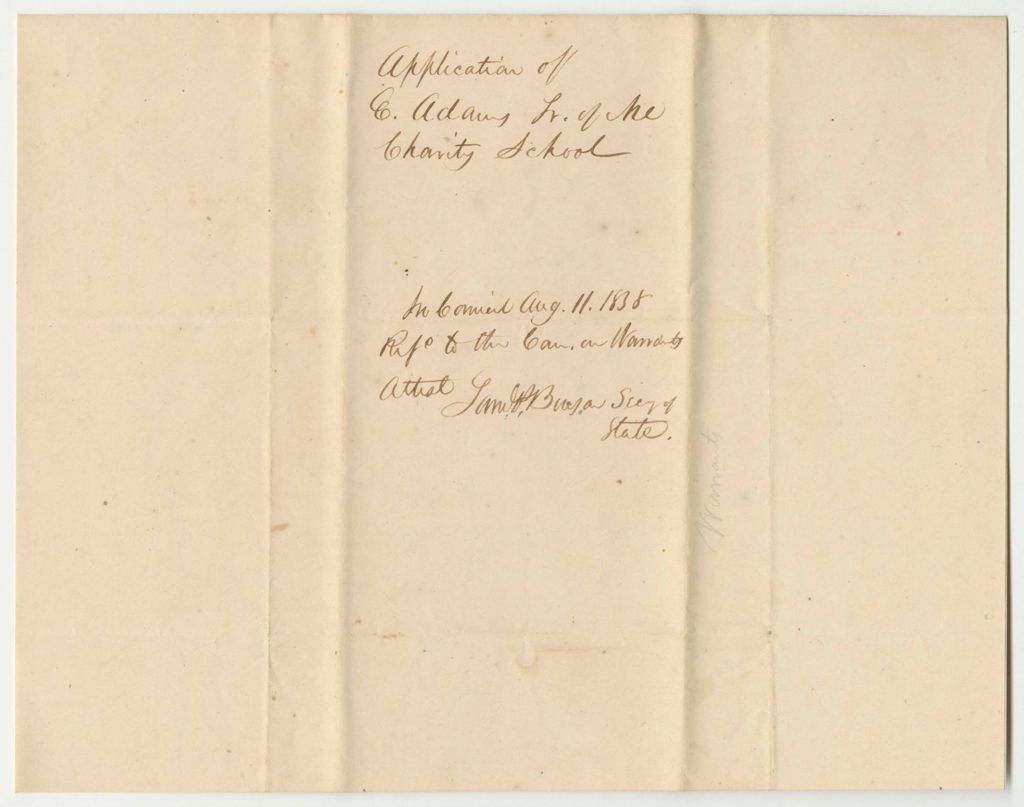 Application of
E. Adams Tr. of Me
Charity School
In Council Aug. 11. 1838
Refd to the Com. on Warrants
Attest Saml P. Benson Secy of
State.
Warrants